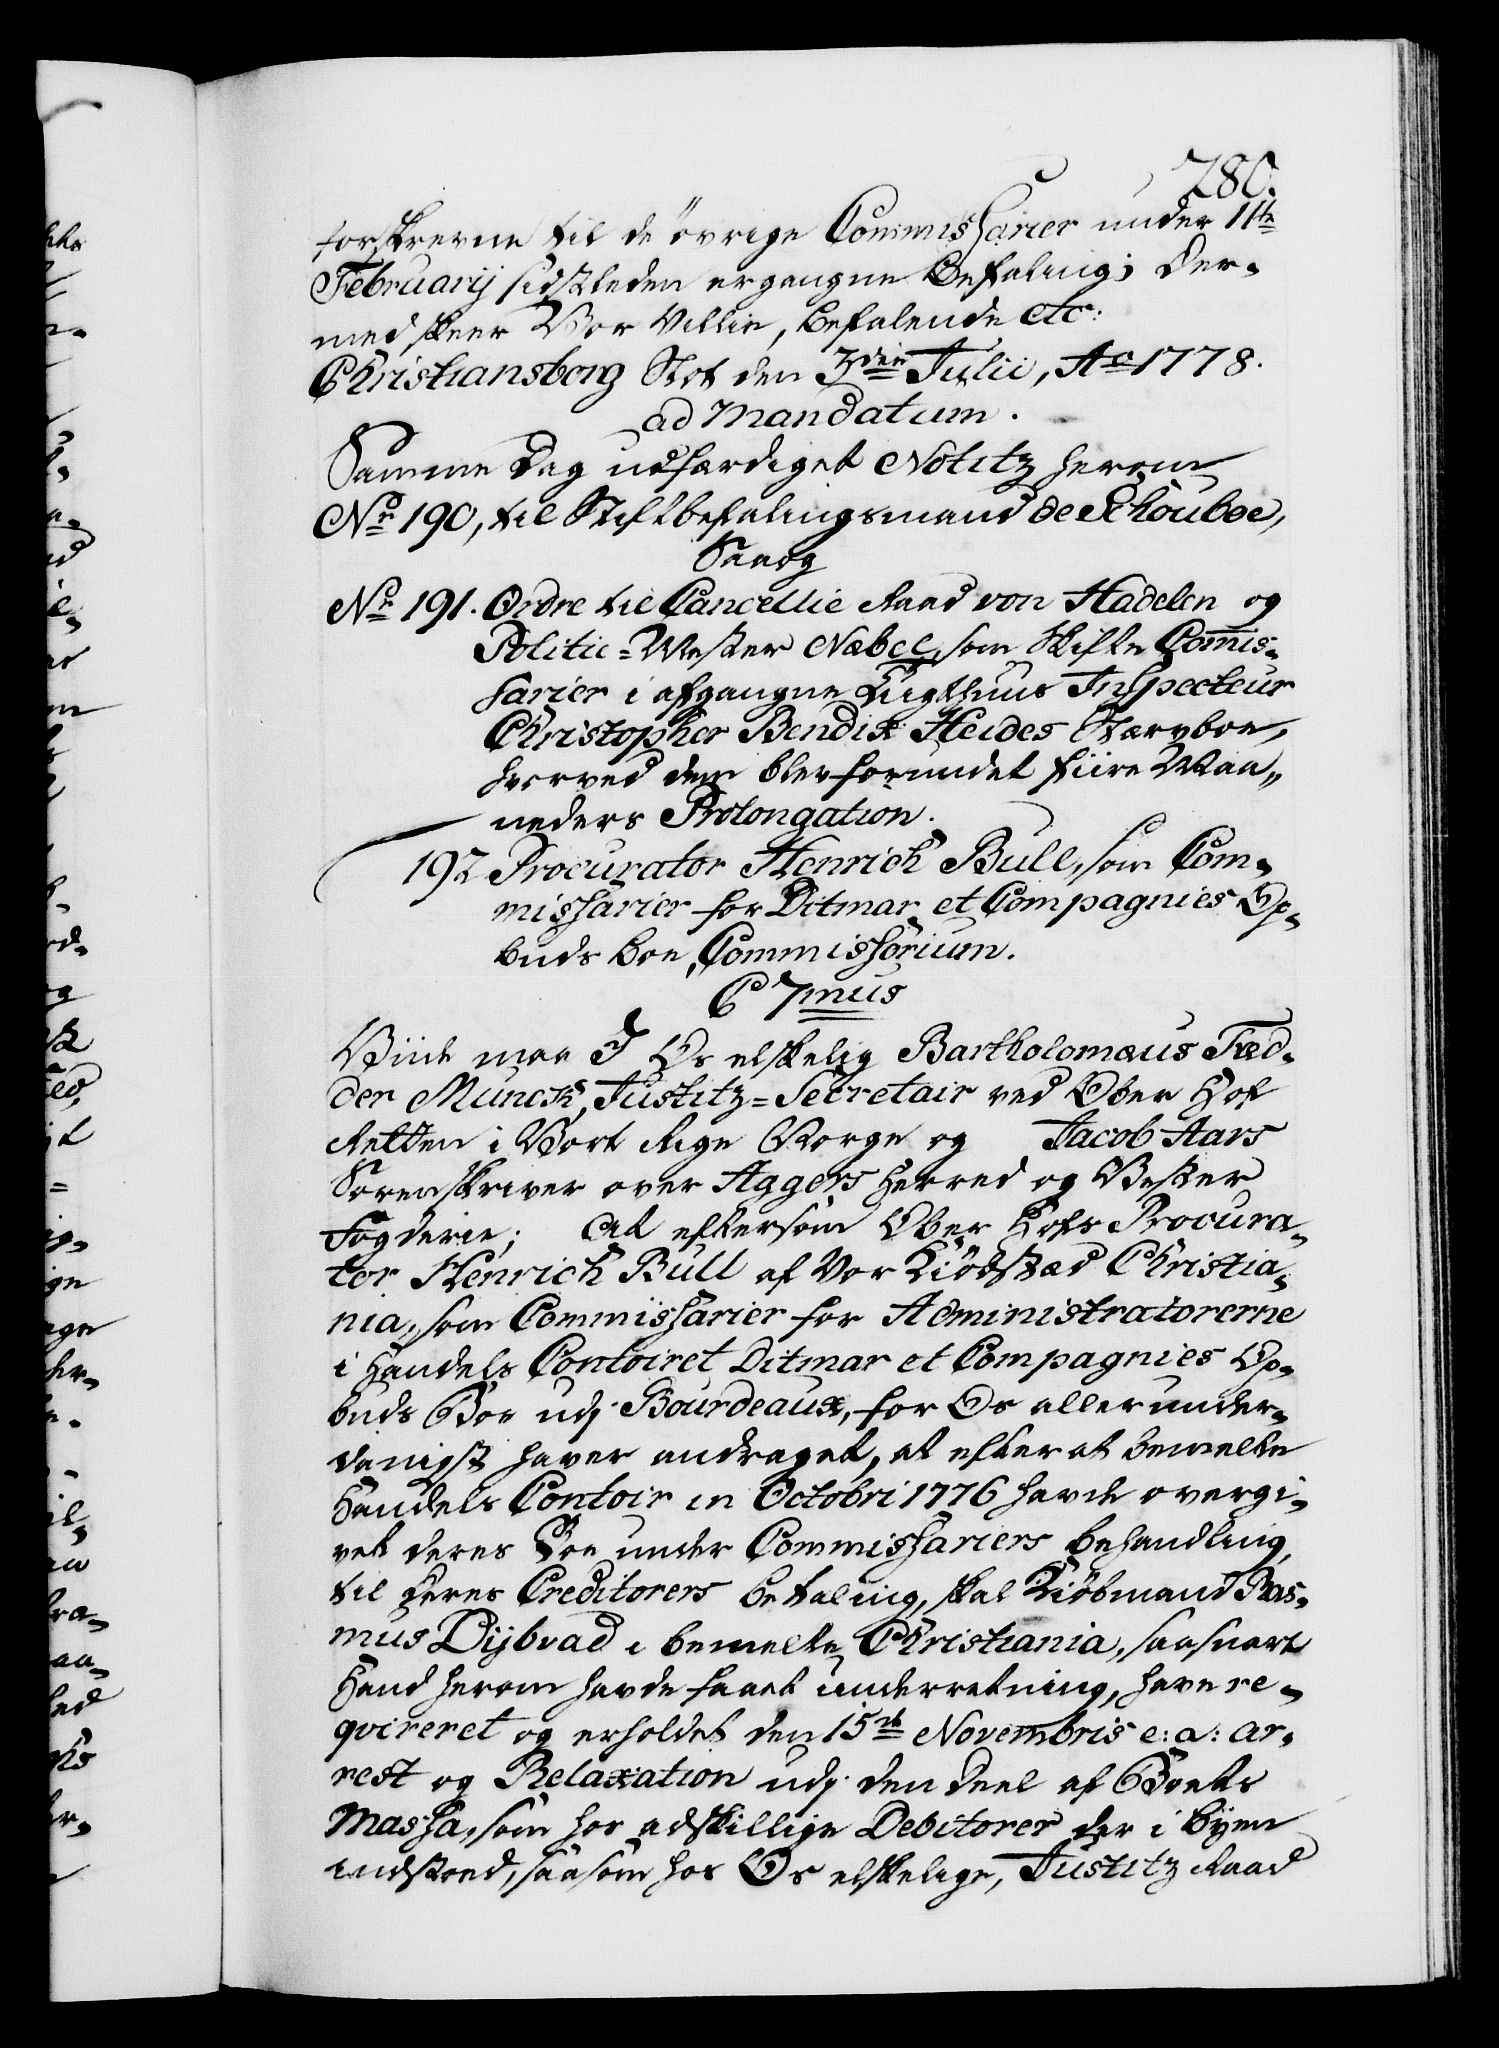 280.
forskrevne til de øvrige Commissarier under 11te
Februarij sidstleden ergangne Befaling; Der-
med skeer Vor Villie, befalende etc:
Christiansborg Slot den 3die Julii, Ao 1778.
ad mandatum.
Samme Dag udfærdiget Notitz herom
No 190, til Stiftbefalingsmand de Schouboe,
Saaog
No 191. Ordre til Cancellie Raad von Hadelen og
Politie-Mester Næbel, som Skifte Comis-
sarier i afgangne Tugthuus Inspecteur
Christopher Bendix Heides Stervboe,
hvorved dem blev forundet fiire Maa-
neders Prolongation.
192 Procurator Henrich Bull, som Com-
missarier for Ditmar et Compagnies Op-
buds boe, Commissorium.
C 7mus
Viide maa I Os elskelig Bartholomæus Fæd-
der Munch, Justitz-Secretair ved Ober Hof
Retten i Vort Rige Norge og Jacob Aars
Sorenskriver over Aggers Herred og Vester
Fogderie; At eftersom Ober Hofs Procura-
tor Henrich Bull af Vor Kiøbstæd Christia-
nia, som Commissarier for Administratorerne
i Handels Contoiret Ditmar et Compagnies Op-
buds Boe udj Bourdeaux, for Os allerunder-
danigst haver andraget, at efter at bemelte
Handels Contoir in Octobri 1776 havde overgi-
vet deres Boe under Commissariers behandling,
til deres Creditorers betaling, skal Kiøbmand Ras-
mus Dijbvad i bemelte Christiania, saasnart
Hand herom havde faaet underretning, have re-
qvireret og erholdet den 15de Novembris e: a: ar-
rest og Relaxation udj den Deel af Boets
Massa, som hos adskillige Debitorer der i byen
indstoed, saasom hos Os elskelige, Justitz Raad